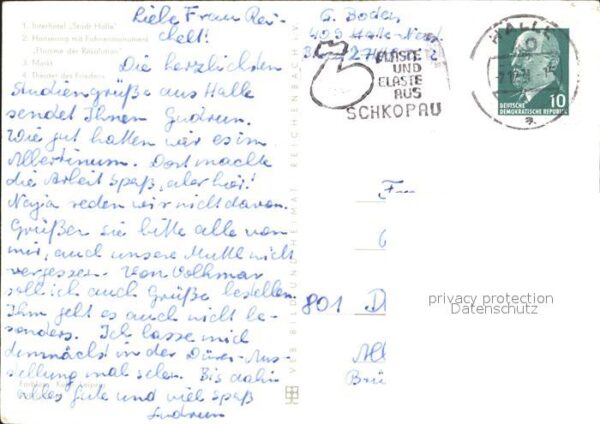 1. Interhotel „Stadt Halle"
2. Hansering mit Fahnenmonument
„Flamme der Revolution"
3. Markt
4. Theater des Friedens
Liebe Frau Rei-
chelt!
Die herzlichsten
Studiengrüße aus Halle
sendet Ihnen Gudrun.
Wie gut hatten wir es im
Albertinum. Dort machte
die Arbeit Spaß, aber hier!
Naja reden wir nicht davon.
Grüßen sie bitte alle von
mir, auch unsere Mutti nicht
vergessen. Von Volkmar
soll ich auch Grüße bestellen.
Ihm geht es auch nicht be-
sonders. Ich lasse mich
demnächst in der Dürer-Aus-
stellung mal sehen. Bis dahin
alles Gute und viel Spaß
Gudrun
VEB BILD UND HEIMAT REICHENBACH I. V.
G. Boden
409 Halle-Neust.
PLASTE
UND
ELASTE
AUS
SCHKOPAU
HALLE
DEUTSCHE
DEMOKRATISCHE REPUBLIK
10
Fr
6
801 D
Alb
Brü
privacy protection
Datenschutz